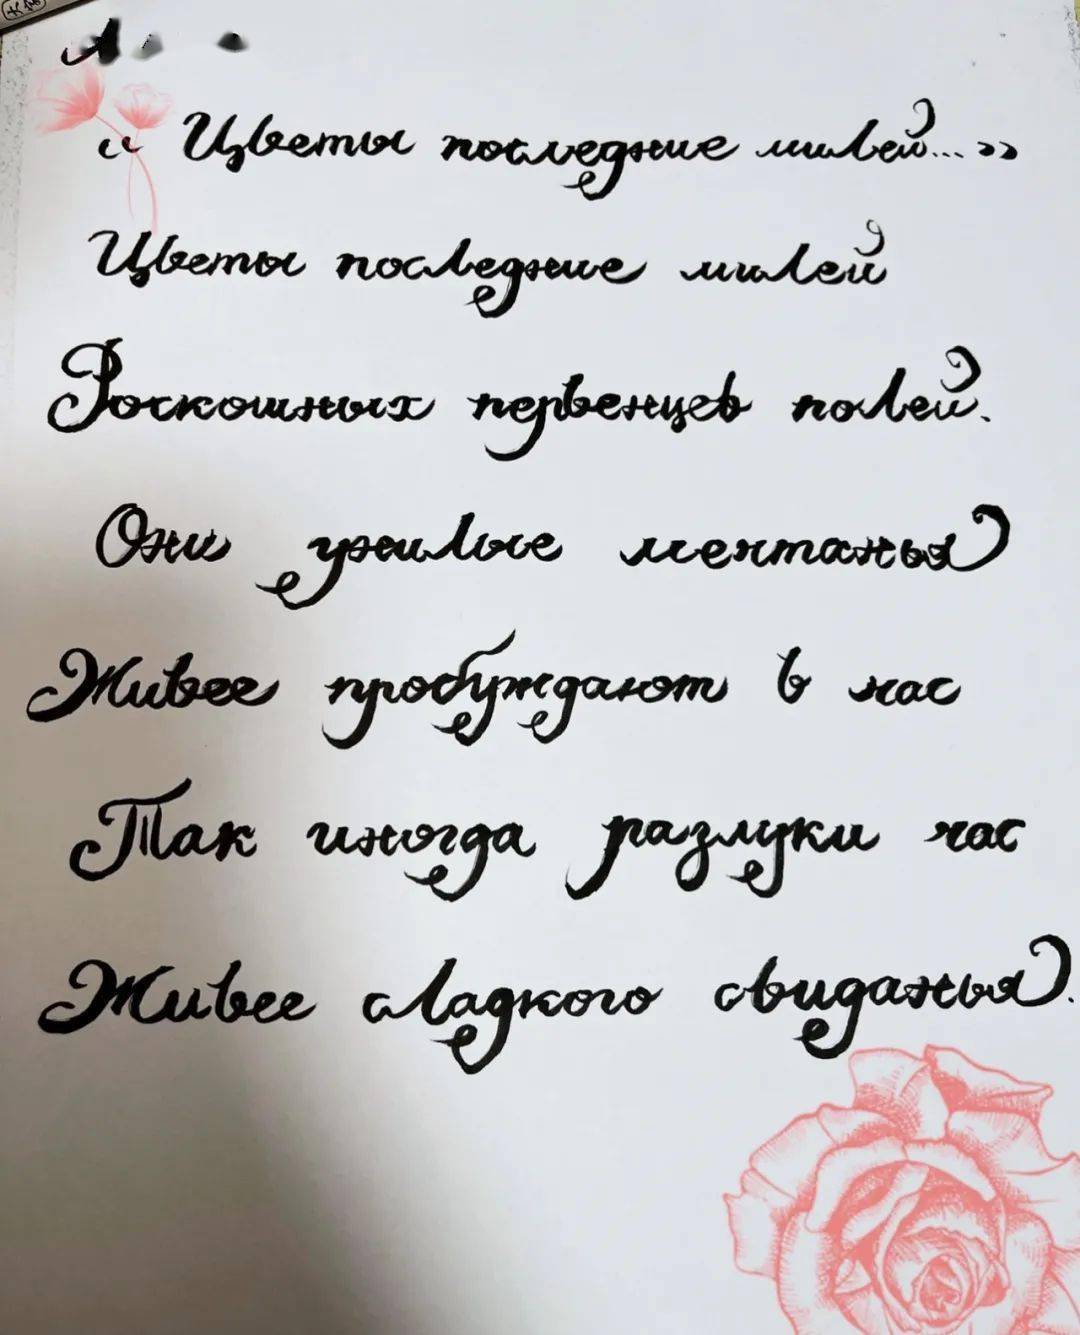 « Цветы последние милей... »
Цветы последние милей
Роскошных первенцев полей.
Они унылые мечтанья
Живее пробуждают в нас
Так иногда разлуки час
Живее сладкого свиданья.